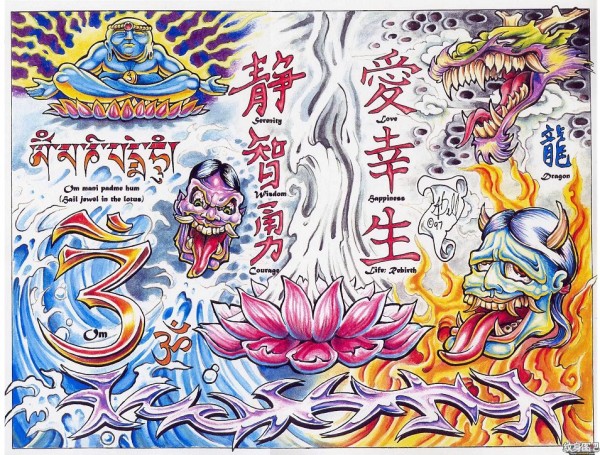 靜
Serenity
智
Wisdom
勇
Courage
愛
Love
幸
Happiness
生
Life; Rebirth
龍
Dragon
Om mani padme hum
(Hail jewel in the lotus)
Om
ॐ
©97